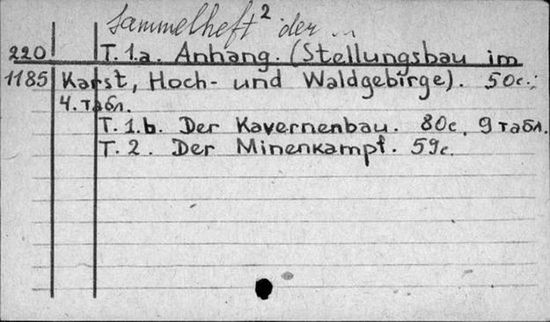 Sammelheft 2 der
220 T. 1.a. Anhang. (Stellungsbau im
1185 Karst, Hoch- und Waldgebirge). 50с.:
4.табл.
T. 1.b. Der Kavernenbau. 80с, 9 табл.
T. 2. Der Minenkampf. 59с.